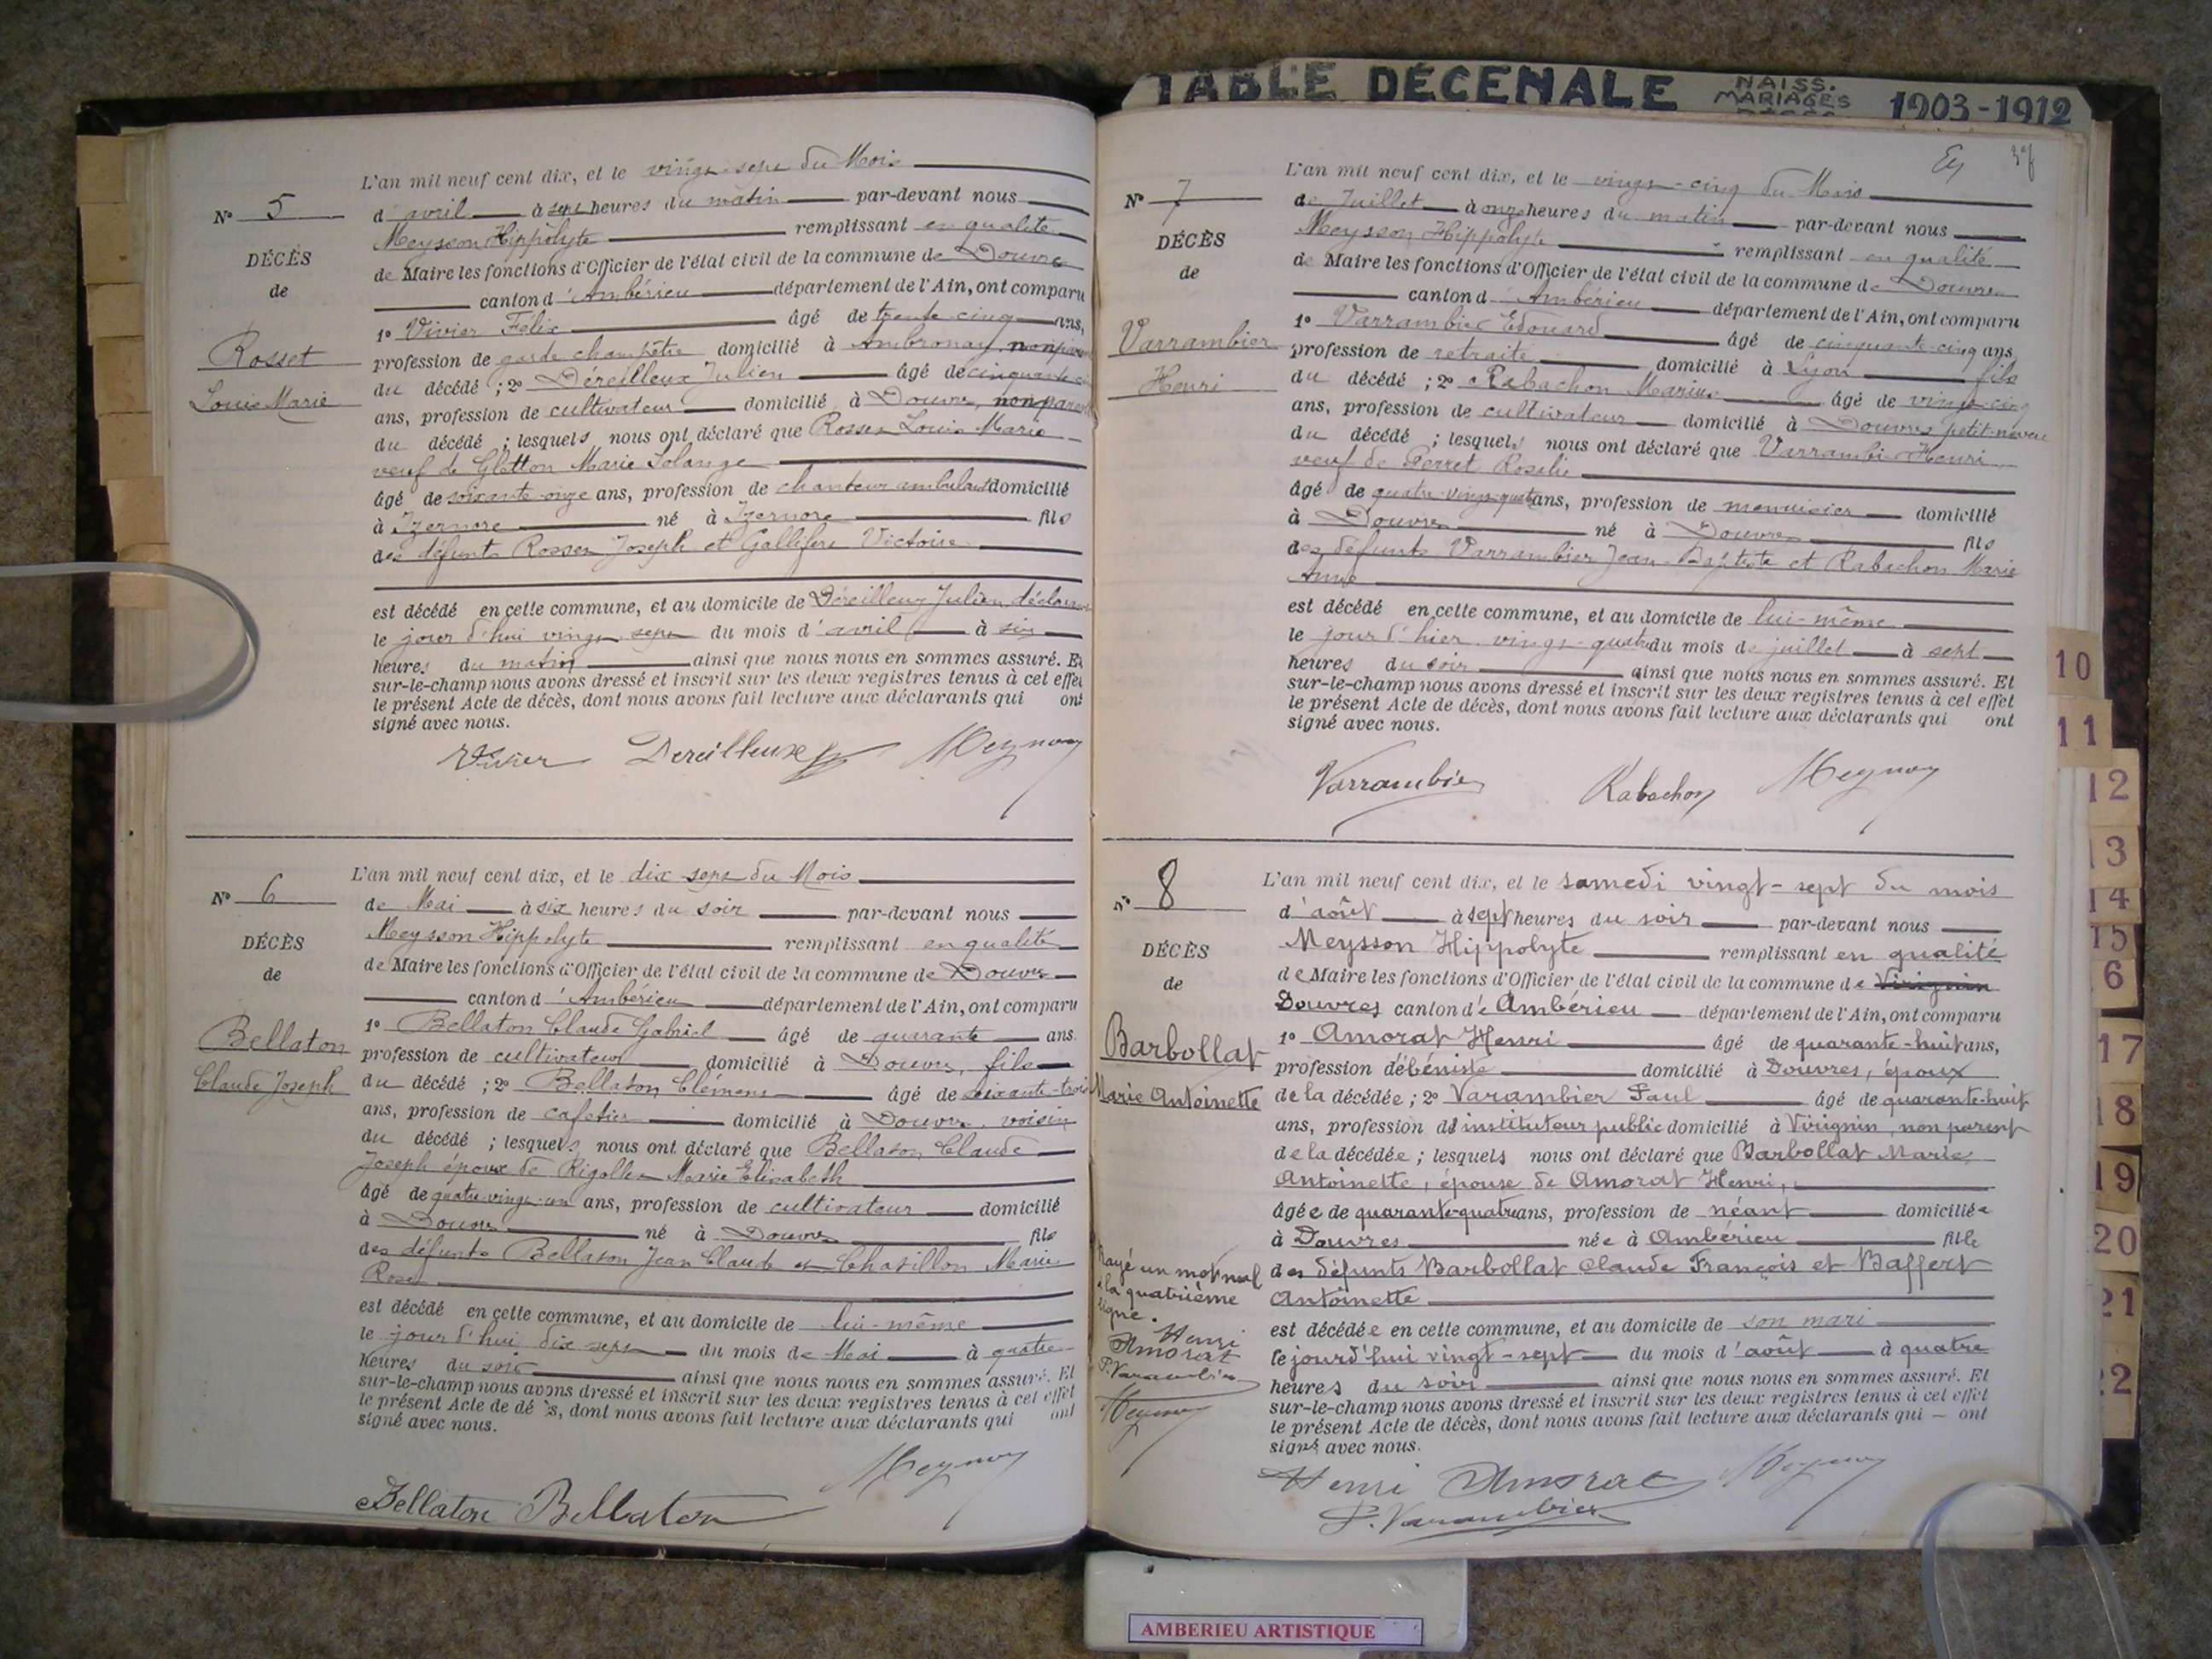 TABLE DÉCENALE NAISS. MARIAGES 1903-1912
L'an mil neuf cent dix, et le vingt-sept du Mois
N° 5
d'avril à sept heures du matin par-devant nous
Meysson Hippolyte remplissant en qualité
DÉCÈS
de Maire les fonctions d'Officier de l'état civil de la commune de Douvres
de
canton d'Ambérieu département de l'Ain, ont comparu
1° Vivier Félix âgé de trente-cinq ans,
Rosset
profession de garde champêtre domicilié à Ambronay, non parent
du décédé ; 2° Déreilleux Julien âgé de cinquante
Louis Marie
ans, profession de cultivateur domicilié à Douvres, non parent
du décédé ; lesquels nous ont déclaré que Rosset Louis Marie
veuf de Gletton Marie Solange
âgé de soixante-onze ans, profession de chanteur ambulant domicilié
à Izernore né à Izernore fils
des défunts Rosset Joseph et Gallifert Victoire
est décédé en cette commune, et au domicile de Déreilleux Julien, déclarant
le jour d'hui vingt-sept du mois d'avril à six
heures du matin ainsi que nous nous en sommes assuré. Et
sur-le-champ nous avons dressé et inscrit sur les deux registres tenus à cet effet
le présent Acte de décès, dont nous avons fait lecture aux déclarants qui ont
signé avec nous.
Vivier Dereilleux Meysson
L'an mil neuf cent dix, et le dix sept du Mois
N° 6
de Mai à six heures du soir par-devant nous
Meysson Hippolyte remplissant en qualité
DÉCÈS
de Maire les fonctions d'Officier de l'état civil de la commune de Douvres
de
canton d'Ambérieu département de l'Ain, ont comparu
1° Bellaton Claude Gabriel âgé de quarante ans.
Bellaton
profession de cultivateur domicilié à Douvres, fils
Claude Joseph
du décédé ; 2° Bellaton Clément âgé de soixante-trois
ans, profession de cafetier domicilié à Douvres, voisin
du décédé ; lesquels nous ont déclaré que Bellaton Claude
Joseph époux de Rigollet Marie Elisabeth
âgé de quatre-vingt-un ans, profession de cultivateur domicilié
à Douvres né à Douvres fils
des défunts Bellaton Jean Claude et Chatillon Marie
Rose
est décédé en cette commune, et au domicile de lui-même
le jour d'hui dix sept du mois de Mai à quatre
heures du soir ainsi que nous nous en sommes assuré. Et
sur-le-champ nous avons dressé et inscrit sur les deux registres tenus à cet effet
le présent Acte de décès, dont nous avons fait lecture aux déclarants qui ont
signé avec nous.
Bellaton Bellaton Meysson
L'an mil neuf cent dix, et le vingt-cinq du Mois
N° 7
de Juillet à onze heures du matin par-devant nous
Meysson Hippolyte remplissant en qualité
DÉCÈS
de Maire les fonctions d'Officier de l'état civil de la commune de Douvres
de
canton d'Ambérieu département de l'Ain, ont comparu
1° Varrambier Edouard âgé de cinquante-cinq ans,
Varrambier
profession de retraité domicilié à Lyon fils
Henri
du décédé ; 2° Rabachon Marius âgé de vingt-cinq
ans, profession de cultivateur domicilié à Douvres petit-neveu
du décédé ; lesquels nous ont déclaré que Varrambier Henri
veuf de Perret Rosalie
âgé de quatre-vingt-quatre ans, profession de menuisier domicilié
à Douvres né à Douvres fils
des défunts Varrambier Jean-Baptiste et Rabachon Marie
Anne
est décédé en cette commune, et au domicile de lui-même
le jour d'hier vingt-quatre du mois de juillet à sept
heures du soir ainsi que nous nous en sommes assuré. Et
sur-le-champ nous avons dressé et inscrit sur les deux registres tenus à cet effet
le présent Acte de décès, dont nous avons fait lecture aux déclarants qui ont
signé avec nous.
Varrambier Rabachon Meysson
L'an mil neuf cent dix, et le samedi vingt-sept du mois
N° 8
d'août à sept heures du soir par-devant nous
Meysson Hippolyte remplissant en qualité
DÉCÈS
de Maire les fonctions d'Officier de l'état civil de la commune de Virignin
de
Douvres canton d'e Ambérieu département de l'Ain, ont comparu
1° Amorat Henri âgé de quarante-huit ans,
Barbollat
profession d'ébéniste domicilié à Douvres, époux
Marie Antoinette
de la décédée ; 2° Varambier Paul âgé de quarante-huit
ans, profession d'instituteur public domicilié à Virignin, non parent
de la décédée ; lesquels nous ont déclaré que Barbollat Marie
Antoinette, épouse de Amorat Henri,
âgée de quarante-quatre ans, profession de néant domiciliée
à Douvres née à Ambérieu fille
des défunts Barbollat Claude François et Baffert
Antoinette
est décédée en cette commune, et au domicile de son mari
le jour d'hui vingt-sept du mois d'août à quatre
heures du soir ainsi que nous nous en sommes assuré. Et
sur-le-champ nous avons dressé et inscrit sur les deux registres tenus à cet effet
le présent Acte de décès, dont nous avons fait lecture aux déclarants qui ont
signé avec nous.
Rayé un mot nul
à la quatrième
ligne.
Henri
Amorat
P. Varambier
Meysson
Henri Amorat Meysson
P. Varambier
10
11
12
13
14
15
6
17
18
19
20
21
22
AMBERIEU ARTISTIQUE